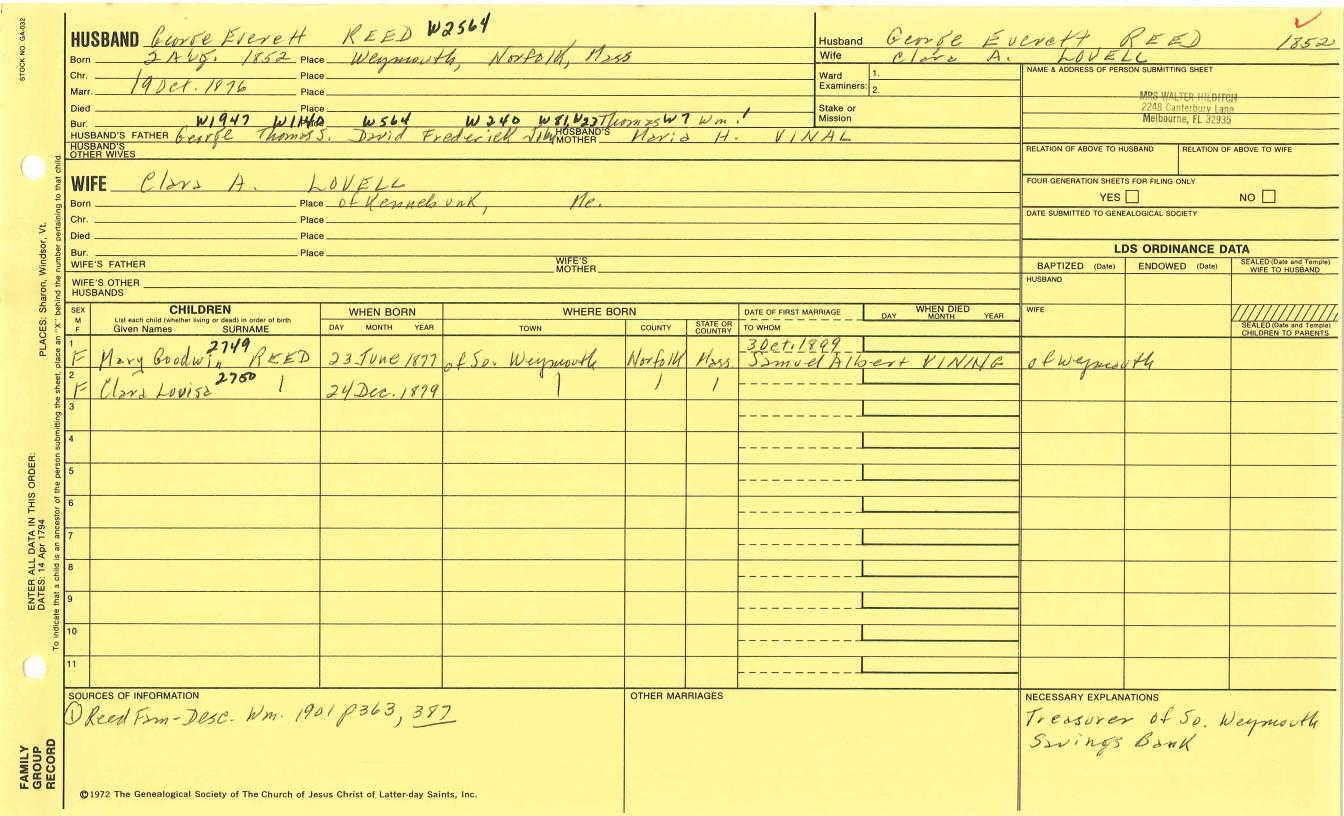 STOCK NO. GA-032
HUSBAND George Everett REED W2564
Born 2 Aug. 1852 Place Weymouth, Norfolk, Mass
Chr. Place
Marr. 19 Oct. 1876 Place
Died Place
Bur. W1947 W1140 W564 W240 W81, W23 Thomas W7 Wm.1
HUSBAND'S FATHER George Thomas S. David Frederick HUSBAND'S MOTHER Maria H. VINAL
HUSBAND'S OTHER WIVES
WIFE Clara A. LOVELL
Born Place of Kennebunk, Me.
Chr. Place
Died Place
Bur. Place
WIFE'S FATHER WIFE'S MOTHER
WIFE'S OTHER HUSBANDS
Husband George Everett REED 1852
Wife Clara A. LOVELL
Ward Examiners: 1. 2.
Stake or Mission
NAME & ADDRESS OF PERSON SUBMITTING SHEET
MRS WALTER HILDITCH
2248 Canterbury Lane
Melbourne, FL 32935
RELATION OF ABOVE TO HUSBAND RELATION OF ABOVE TO WIFE
FOUR GENERATION SHEETS FOR FILING ONLY
YES NO
DATE SUBMITTED TO GENEALOGICAL SOCIETY
LDS ORDINANCE DATA
BAPTIZED (Date) ENDOWED (Date) SEALED (Date and Temple) WIFE TO HUSBAND
HUSBAND
WIFE
SEALED (Date and Temple) CHILDREN TO PARENTS
SEX M F
CHILDREN
List each child (whether living or dead) in order of birth
Given Names SURNAME
WHEN BORN
DAY MONTH YEAR
WHERE BORN
TOWN COUNTY STATE OR COUNTRY
DATE OF FIRST MARRIAGE
TO WHOM
WHEN DIED
DAY MONTH YEAR
1 F Mary Goodwin 2749 REED 23 June 1877 of So. Weymouth Norfolk Mass. 3 Oct. 1899 Samuel Albert VINING of Weymouth
2 F Clara Louisa 2750 24 Dec. 1879
3
4
5
6
7
8
9
10
11
SOURCES OF INFORMATION
① Reed Fam-Desc. Wm. 1901 p363, 387
OTHER MARRIAGES
NECESSARY EXPLANATIONS
Treasurer of So. Weymouth
Savings Bank
©1972 The Genealogical Society of The Church of Jesus Christ of Latter-day Saints, Inc.
FAMILY GROUP RECORD
ENTER ALL DATA IN THIS ORDER:
DATES: 14 Apr 1794
PLACES: Sharon, Windsor, Vt.
To indicate that a child is an ancestor of the person submitting the sheet, place an "X" behind the number pertaining to that child.